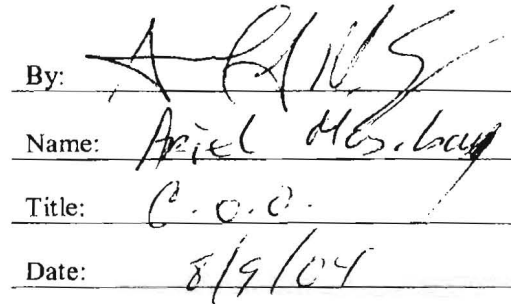 By:
Name: Ariel
Title: C.O.O.
Date: 8/9/04